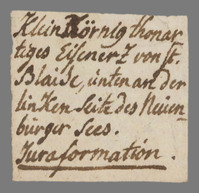 Klein Körnig thonar
tiges Eisenerz von St.
Blaise, unten an der
linken Seite des Neuen
bürger Sees.
Juraformation.